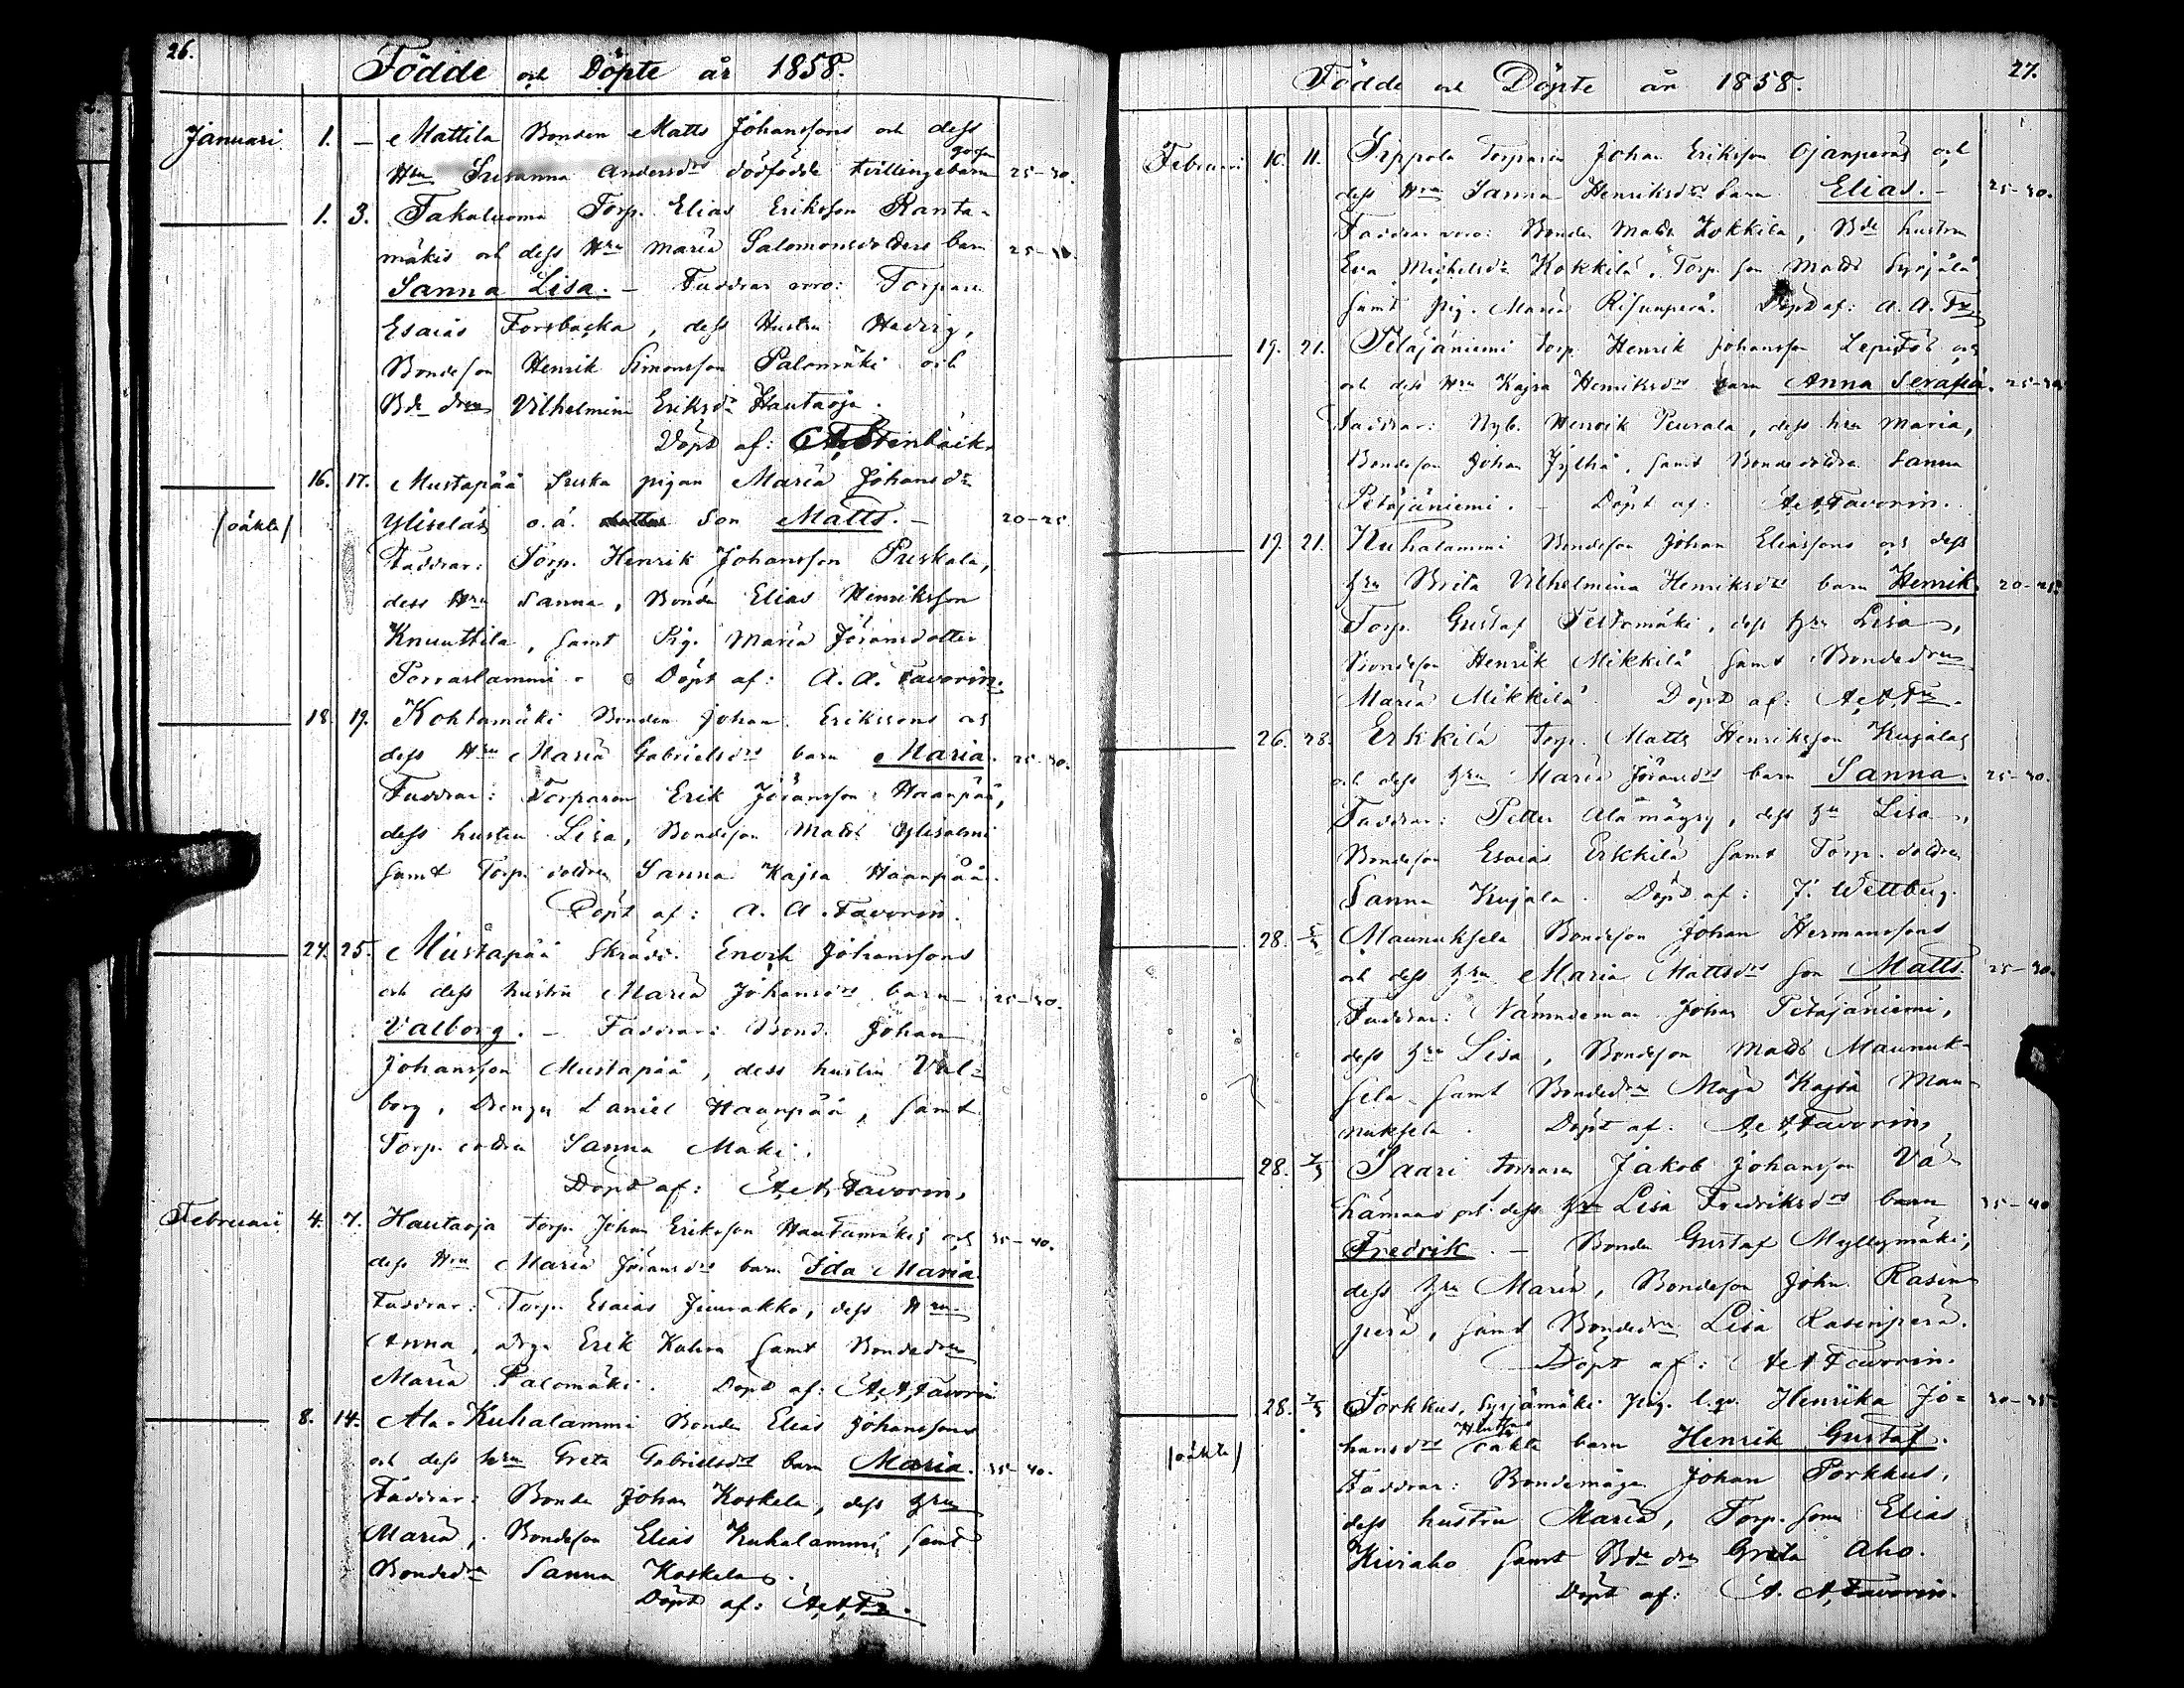 26.
Födde och Döpte år 1858.
Januari 1. — Mattila Bonden Matts Johanssons och dess
gosse
Hru Susanna Andersdrs dödfödde tvillingebarn 25-30.
1. 3. Takaluoma Torp. Elias Eriksson Ranta-
mäkis och dess Hru Maria Salomonsdotters barn 25-30.
Sanna Lisa. — Faddrar voro: Torparen
Esaias Forsbacka, dess Hustru Hedvig,
Bondeson Henrik Simonsson Palomäki och
Bde dren Vilhelmina Eriksdr Hautaoja.
Döpt af: Stenbäck
16. 17. Mustapää Inska pigan Maria Johansdr
(oäkta) Yliseläs o.ä. dotter Son Matts. — 20-25
Faddrar: Torp. Henrik Johansson Puskala,
dess Hru Sanna, Bonde Elias Henriksson
Knuuttila, samt Pig. Maria Jöransdotter
Porraslammi. Döpt af: A. A. Favorin.
18. 19. Kohtamäki Bonden Johan Erikssons och
dess Hru Maria Gabrielsdrs barn Maria. 25-30.
Faddrar: Torparen Erik Jöransson Haanpää,
dess hustru Lisa, Bondeson Matts Ylisalmi
samt Torp. doldren Sanna Kajsa Haanpää.
Döpt af: A. A. Favorin.
24. 25. Mustapää Skrädd. Enoch Johanssons
och dess hustru Maria Johansdrs barn 25-30.
Valborg. — Faddrar: Bond. Johan
Johansson Mustapää, dess hustru Val=
borg, Drengen Daniel Haanpää, samt
Torp. doldren Sanna Mäki.
Döpt af: A. A. Favorin,
Februari 4. 7. Hautaoja torp. Johan Eriksson Hautamäkis och 35-40.
dess Hru Maria Jöransdrs barn Ida Maria.
Faddrar: Torp. Esaias Jiurakko, dess Hru
Anna, drg. Erik Kahra samt Bondedren
Maria Palomäki. Döpt af: A. A. Favorin
8. 14. Ala-Kuhalammi Bonde Elias Johanssons
och dess hru Greta Gabrielsdrs barn Maria. 35-40.
Faddrar: Bonde Johan Koskela, dess hru
Maria, Bondeson Elias Kuhalammi, samt
Bondedr Sanna Koskela.
Döpt af: A. A. Fn.
27.
Födde och Döpte år 1858.
Februari 10. 11. Sippola Torparen Johan Eriksson Ojanperäs och
dess Hru Sanna Henriksdrs barn Elias. — 25-30.
Faddrar voro: Bonden Matts Kokkila, Bde hustru
Eva Michelsdr Kokkila, Torp. son Matts Syrjälä
samt Pig. Maria Risunperä. Döpt af: A. A. Fn
19. 21. Petäjäniemi torp. Henrik Johansson Lepistös och
och dess Hru Kajsa Henriksdrs barn Anna Serafia. 25-30
Faddrar: Nyb. Henrik Peurala, dess hru Maria,
Bondeson Johan Jylhä, samt Bondedoldren Sanna
Petäjäniemi. — Döpt af: A. A. Favorin.
19. 21. Kuhalammi Bondeson Johan Eliassons och dess
hru Brita Vilhelmina Henriksdrs barn Henrik. 20-25.
Torp. Gustaf Testomäki, dess hru Lisa,
Bondeson Henrik Mikkilä samt Bondedren
Maria Mikkilä. Döpt af: A. A. Fn.
26. 28. Erkkilä torp. Matts Henriksson Kujalas
och dess hru Maria Jöransdrs barn Sanna. 25-30.
Faddrar: Petter Alamäyry, dess hru Lisa,
Bondeson Esaias Erkkilä samt Torp. doldren
Sanna Kujala. Döpt af: J. Wettberg.
28. Maunuksela Bondeson Johan Hermanssons
och dess hru Maria Mattsdrs son Matts. 25-30.
Faddrar: Nämndeman Johan Petäjäniemi,
dess hru Lisa, Bondeson Matts Maunuk-
sela samt Bondedr Maja Kajsa Mau-
nuksela. Döpt af: A. A. Favorin,
28. 7/3 Saari torparen Jakob Johansson Vä-
hämaas och dess hru Lisa Fredriksdrs barn 35-40
Fredrik. — Bonden Gustaf Myllymäki,
dess hru Maria, Bondeson John. Rasin
perä, samt Bondedren Lisa Rasinperä.
Döpt af: A. A. Favorin.
28. 7/3 Porkkus, Syrjämäki pig. l. qv. Henrika Jo= 30-35
(oäkta) hansdrs oäkta barn Henrik Gustaf.
Faddrar: Bondemågen Johan Porkkus,
dess hustru Maria, Torp. son Elias
Kiviaho samt Bde dren Greta Aho.
Döpt af: A. A. Favorin.